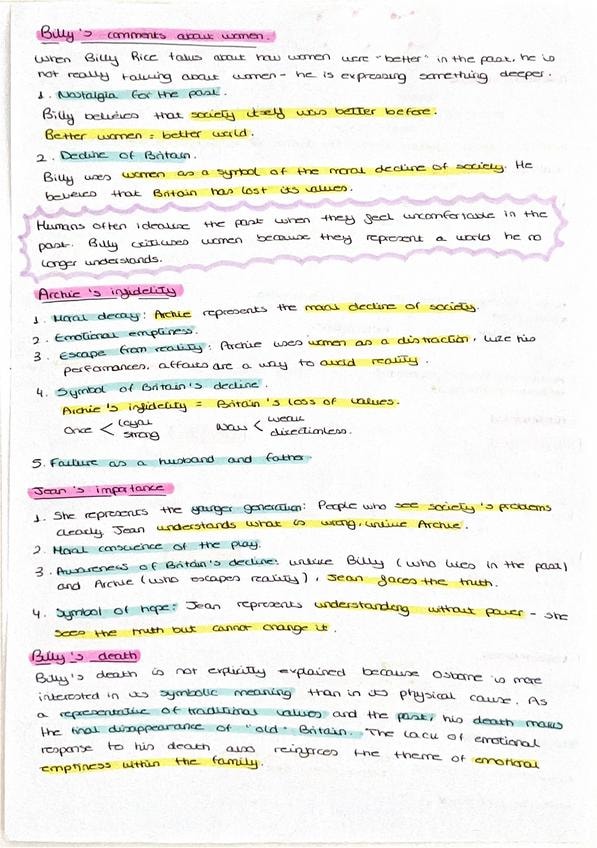 Billy's comments about women.
When Billy Rice talks about how women were "better" in the past, he is
not really talking about women - he is expressing something deeper.
1. Nostalgia for the past.
Billy believes that society itself was better before.
Better women = better world.
2. Decline of Britain.
Billy uses women as a symbol of the moral decline of society. He
believes that Britain has lost its values.
Humans often idealise the past when they feel uncomfortable in the
past. Billy critiuses women because they represent a world he no
longer understands.
Archie's infidelity
1. Moral decay: Archie represents the moral decline of society.
2. Emotional emptiness.
3. Escape from reality: Archie uses women as a distraction, like his
performances, affairs are a way to avoid reality.
4. Symbol of Britain's decline.
Archie's infidelity = Britain's loss of values.
Once < loyal strong Now < weak directionless.
5. Failure as a husband and father.
Jean's importance
1. She represents the younger generation: People who see society's problems
clearly. Jean understands what is wrong, unlike Archie.
2. Moral conscience of the play.
3. Awareness of Britain's decline: unlike Billy (who lives in the past)
and Archie (who escapes reality), Jean faces the truth.
4. Symbol of hope: Jean represents understanding without power - she
sees the truth but cannot change it.
Billy's death
Billy's death is not explicitly explained because Osborne is more
interested in its symbolic meaning than in its physical cause. As
a representative of traditional values and the past, his death marks
the final disappearance of "old" Britain. The lack of emotional
response to his death also reinforces the theme of emotional
emptiness within the family.